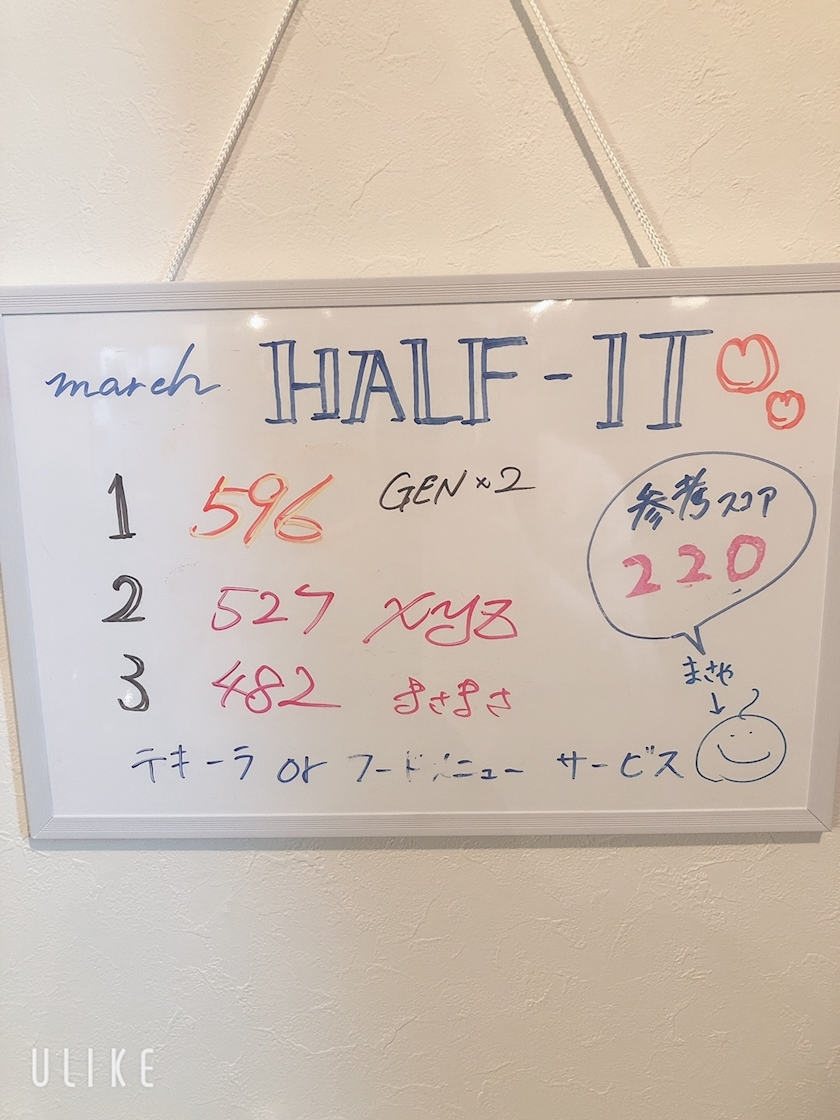 march HALF-IT
1 596 GEN×2
参考スコア
220
2 527 xyz
3 482 まさまさ
まさや
↓
テキーラ or フードメニュー サービス
ULIKE